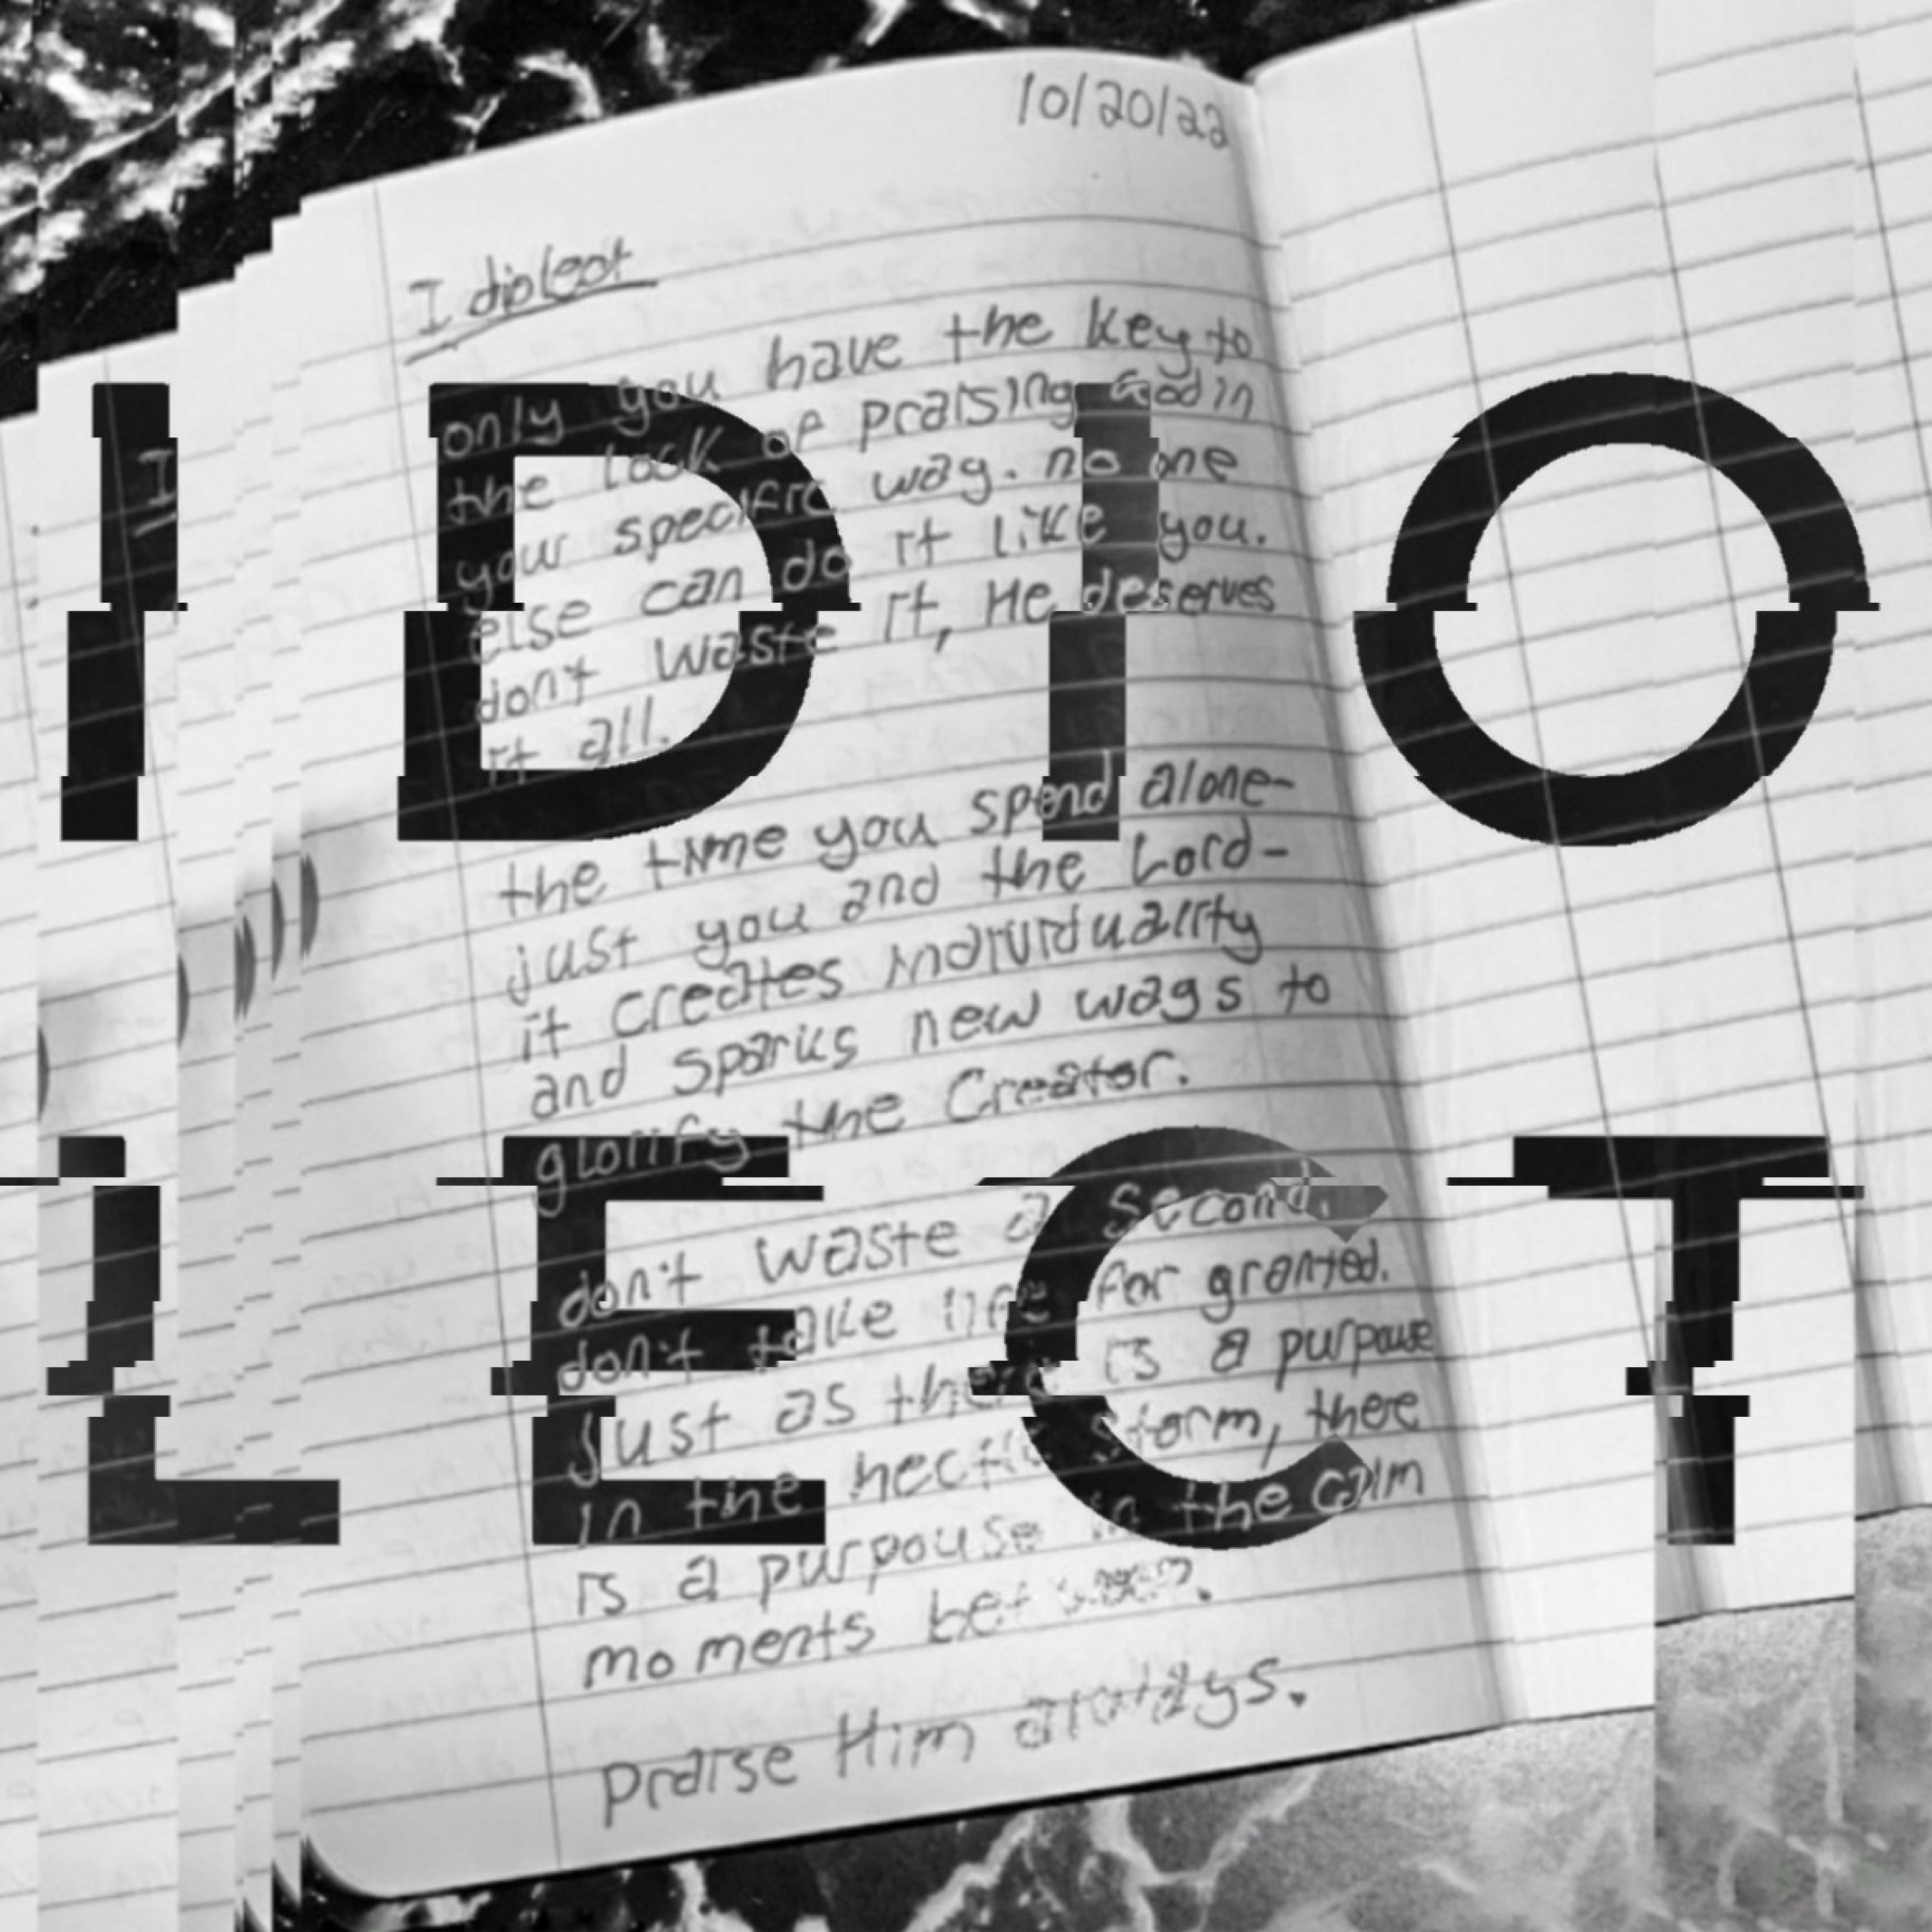 10/20/22
I diolect
IDIO
LECT
only you have the key to
the lock of praising God in
your specific way. no one
else can do it like you.
don't waste it, He deserves
it all.
the time you spend alone-
just you and the Lord-
it creates individuality
and sparks new ways to
glorify the Creator.
don't waste a second.
don't take life for granted.
just as there is a purpouse
in the hectic storm, there
is a purpouse in the calm
moments between.
praise Him always.